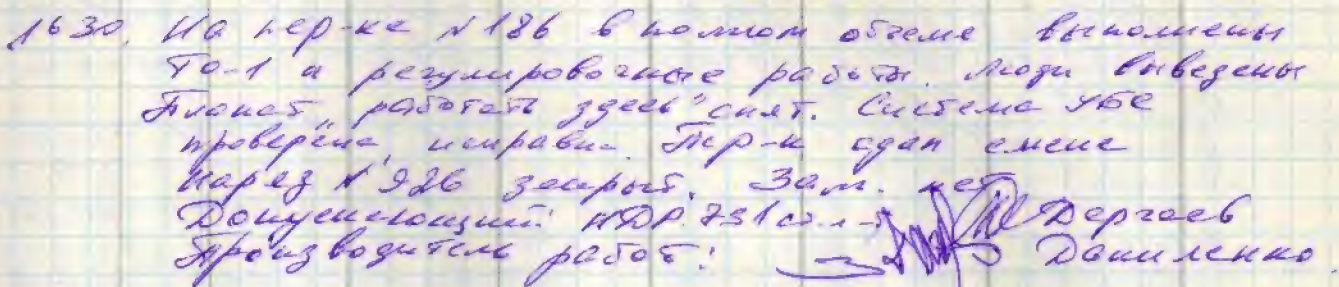 1630. На пер-ке №186 в полном объеме выполнены
ТО-1 и регулировочные работы. Люди выведены
Плакат „работать здесь" снят. Система УБС
проверена, исправна. Пер-к сдан смене
Наряд №926 закрыт. Зам. нет
Допускающий: Дергаев
Производитель работ: Даниленко.